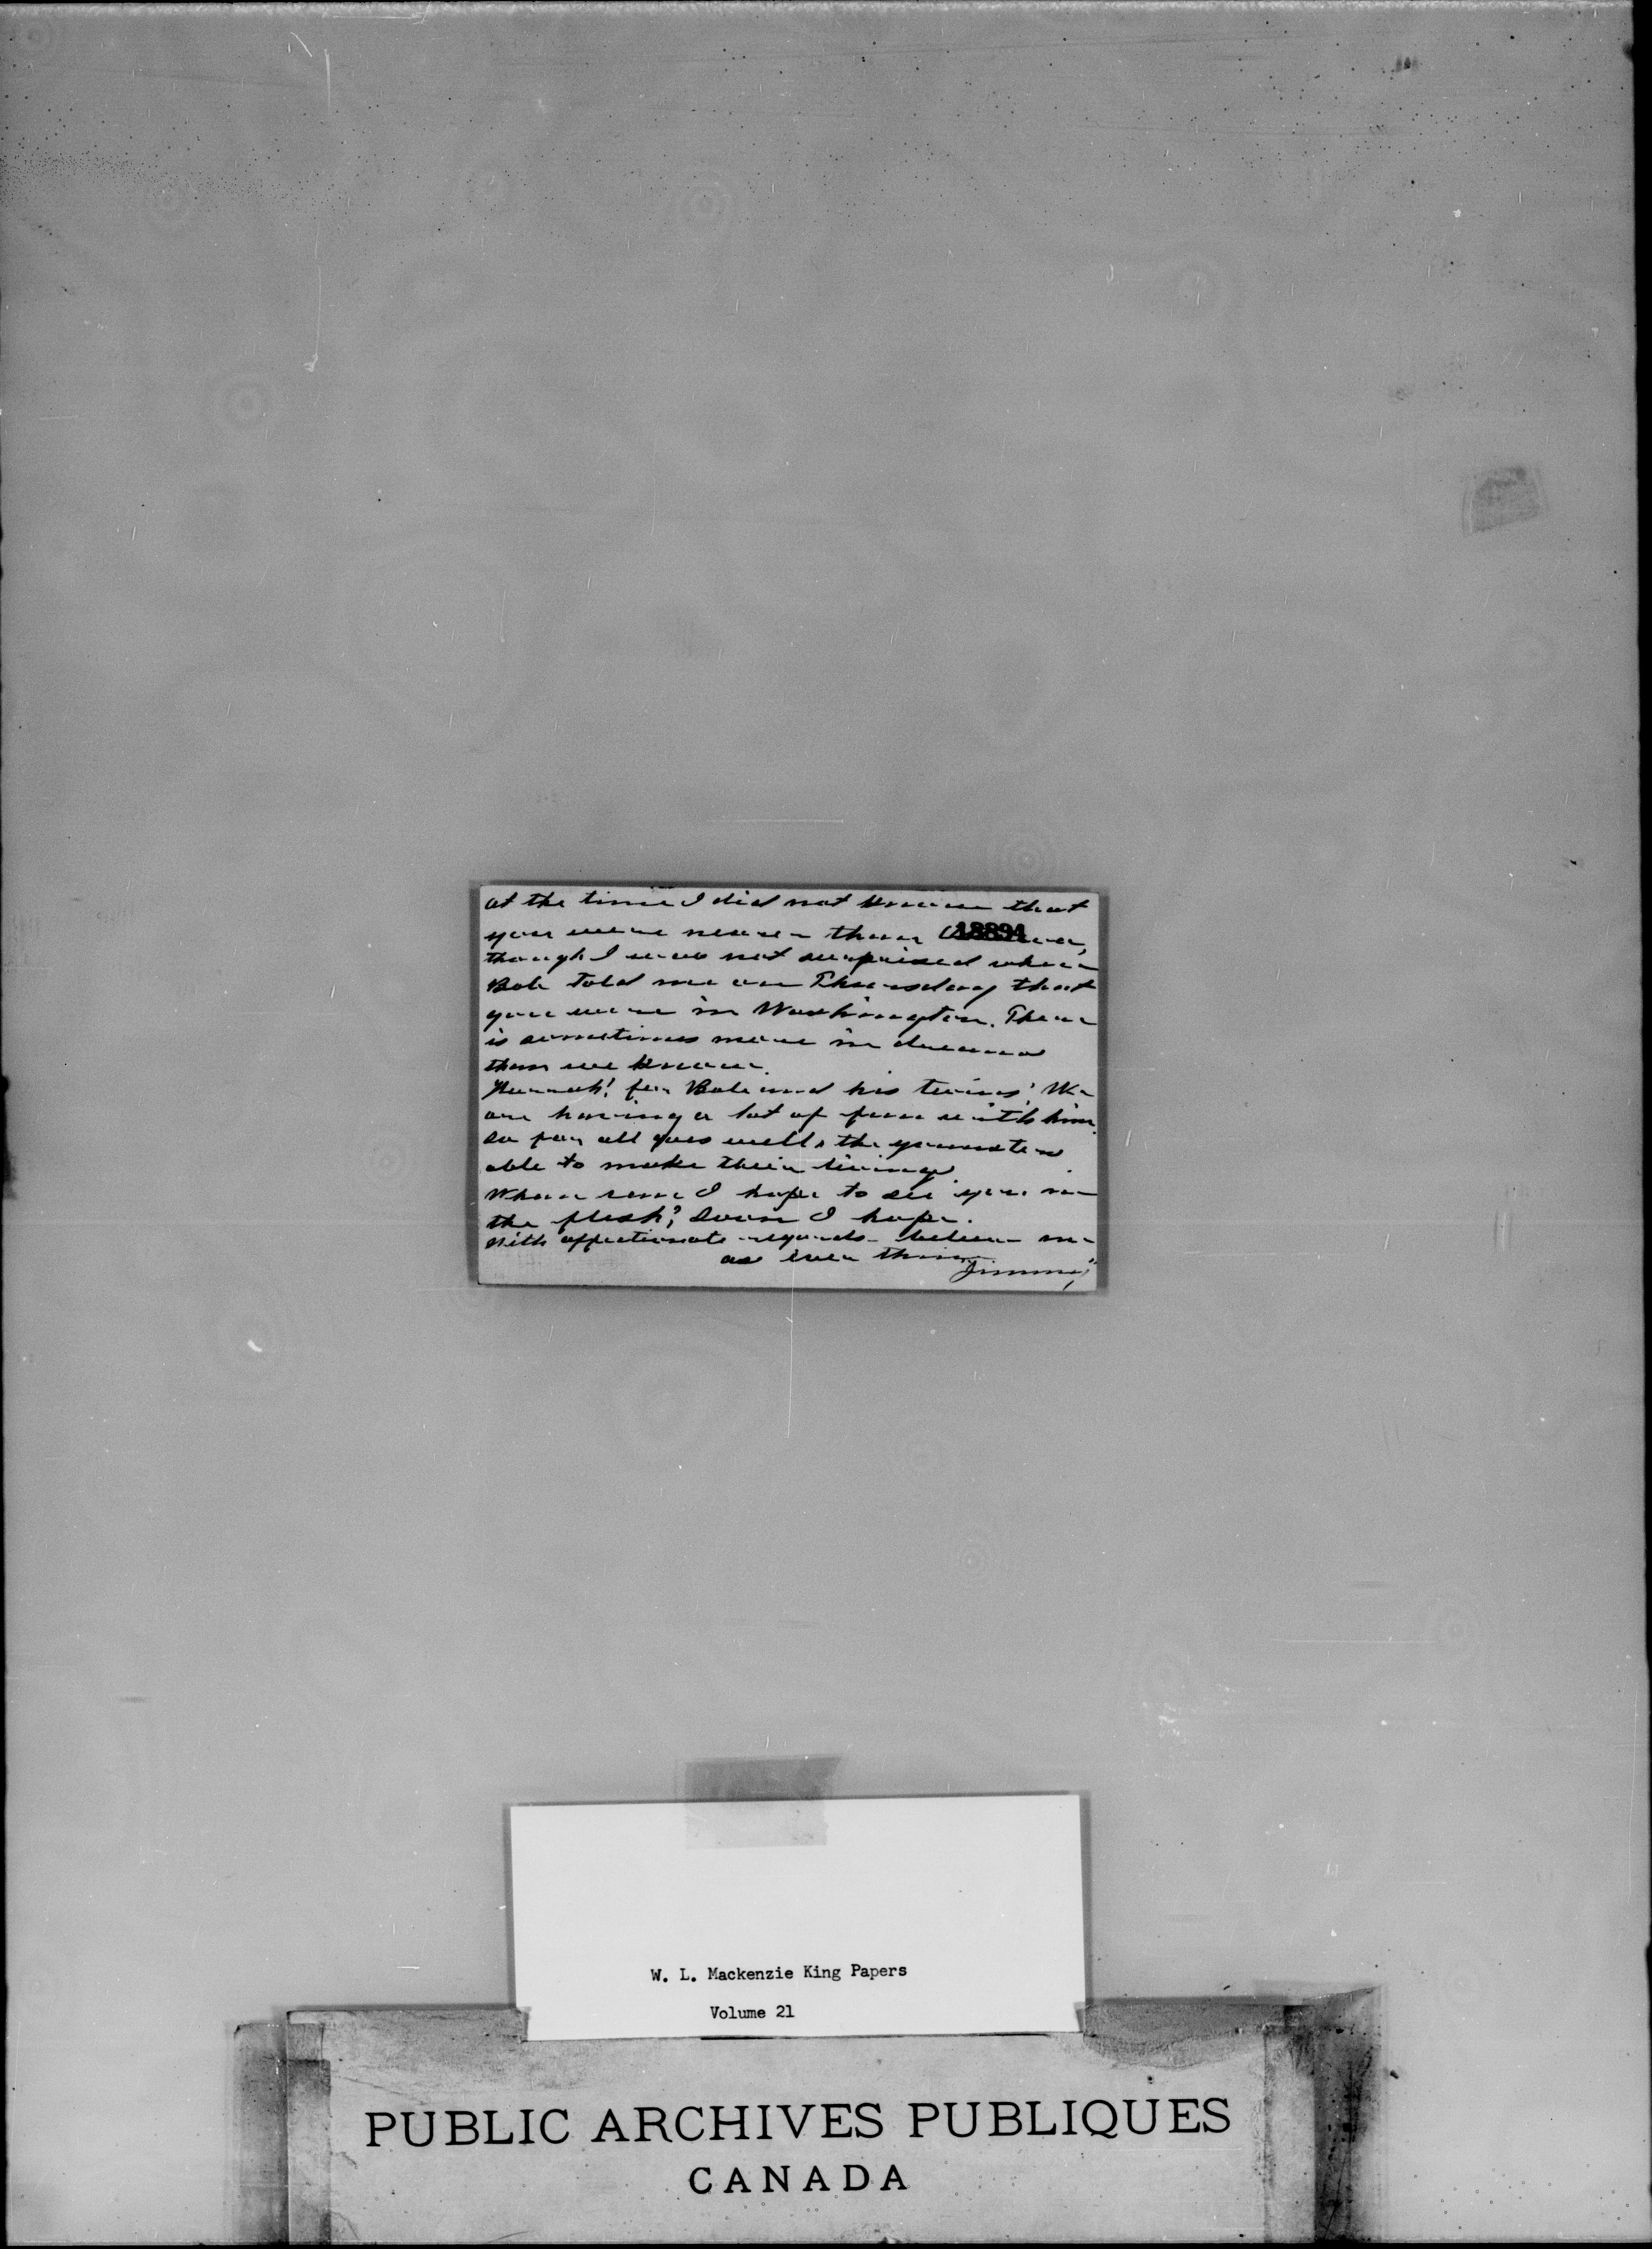 at the time I did not know that
18894
you were nearer than
though I was not surprised when
Bob told me on Thursday that
you were in Washington. There
is sometimes more in dreams
than we know.
Hurrah! for Bob and his twins! We
are having a lot of fun with him.
So far all goes well, the youngsters
able to make their
When can I hope to see you in
the flesh? Soon I hope.
With affectionate regards believe me
as ever thine
"Jimmy"
W. L. Mackenzie King Papers
Volume 21
PUBLIC ARCHIVES PUBLIQUES
CANADA